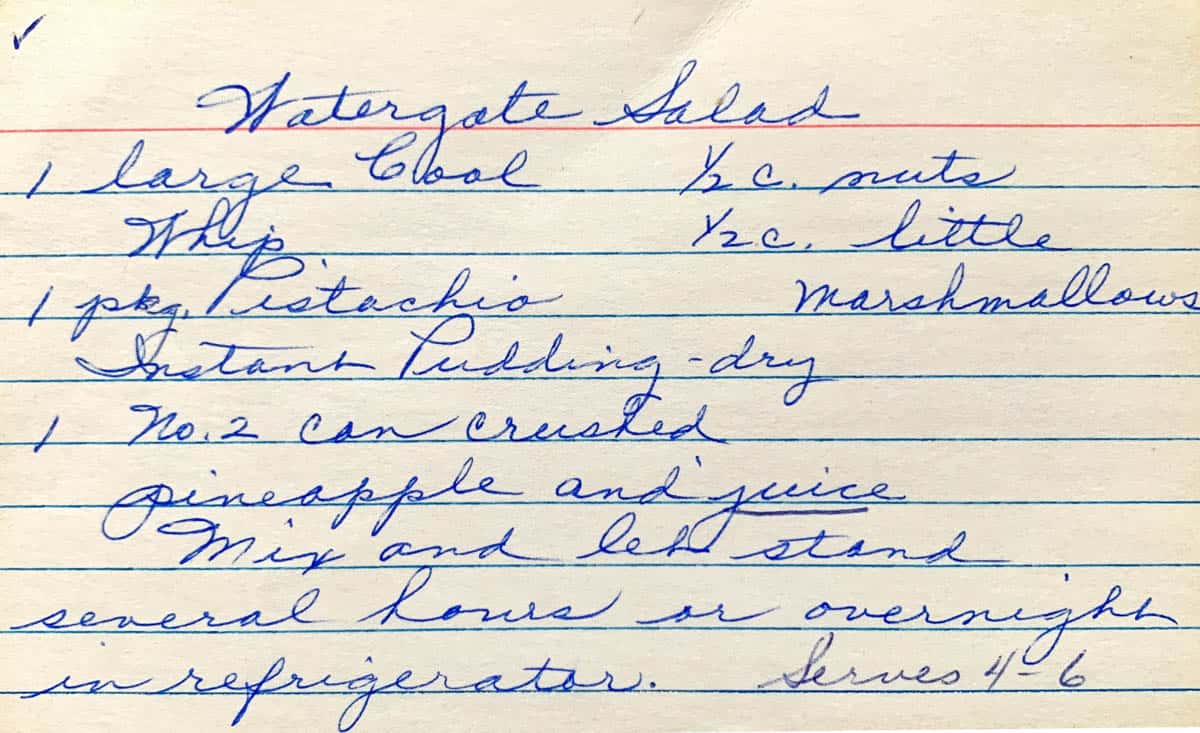 Watergate Salad
1 large Cool 1/2 c. nuts
Whip 1/2 c. little
1 pkg. Pistachio marshmallows
Instant Pudding - dry
1 No. 2 can crushed
pineapple and juice
Mix and let stand
several hours or overnight
in refrigerator. Serves 4-6